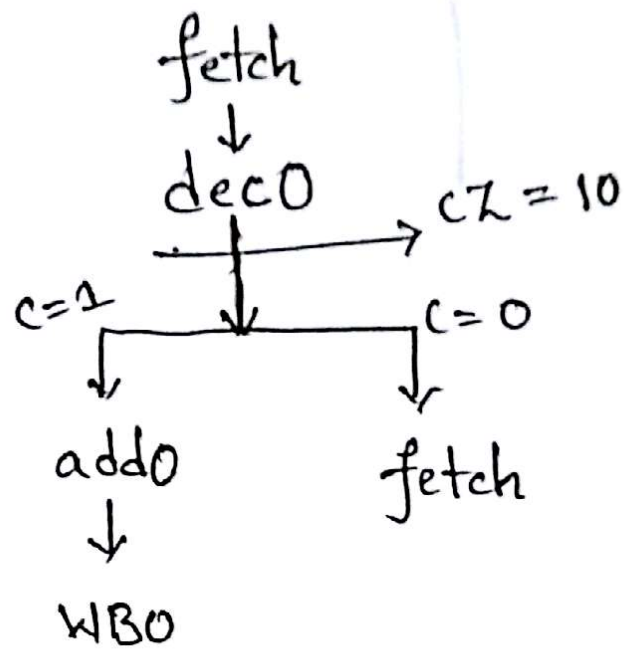 fetch
dec0
CZ = 10
C=1
C=0
add0
fetch
WB0